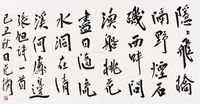 隱隱飛橋
隔野煙石
磯西畔問
漁船桃花
盡日随流
水洞在清
溪何處邊
張旭诗一首
己丑秋日